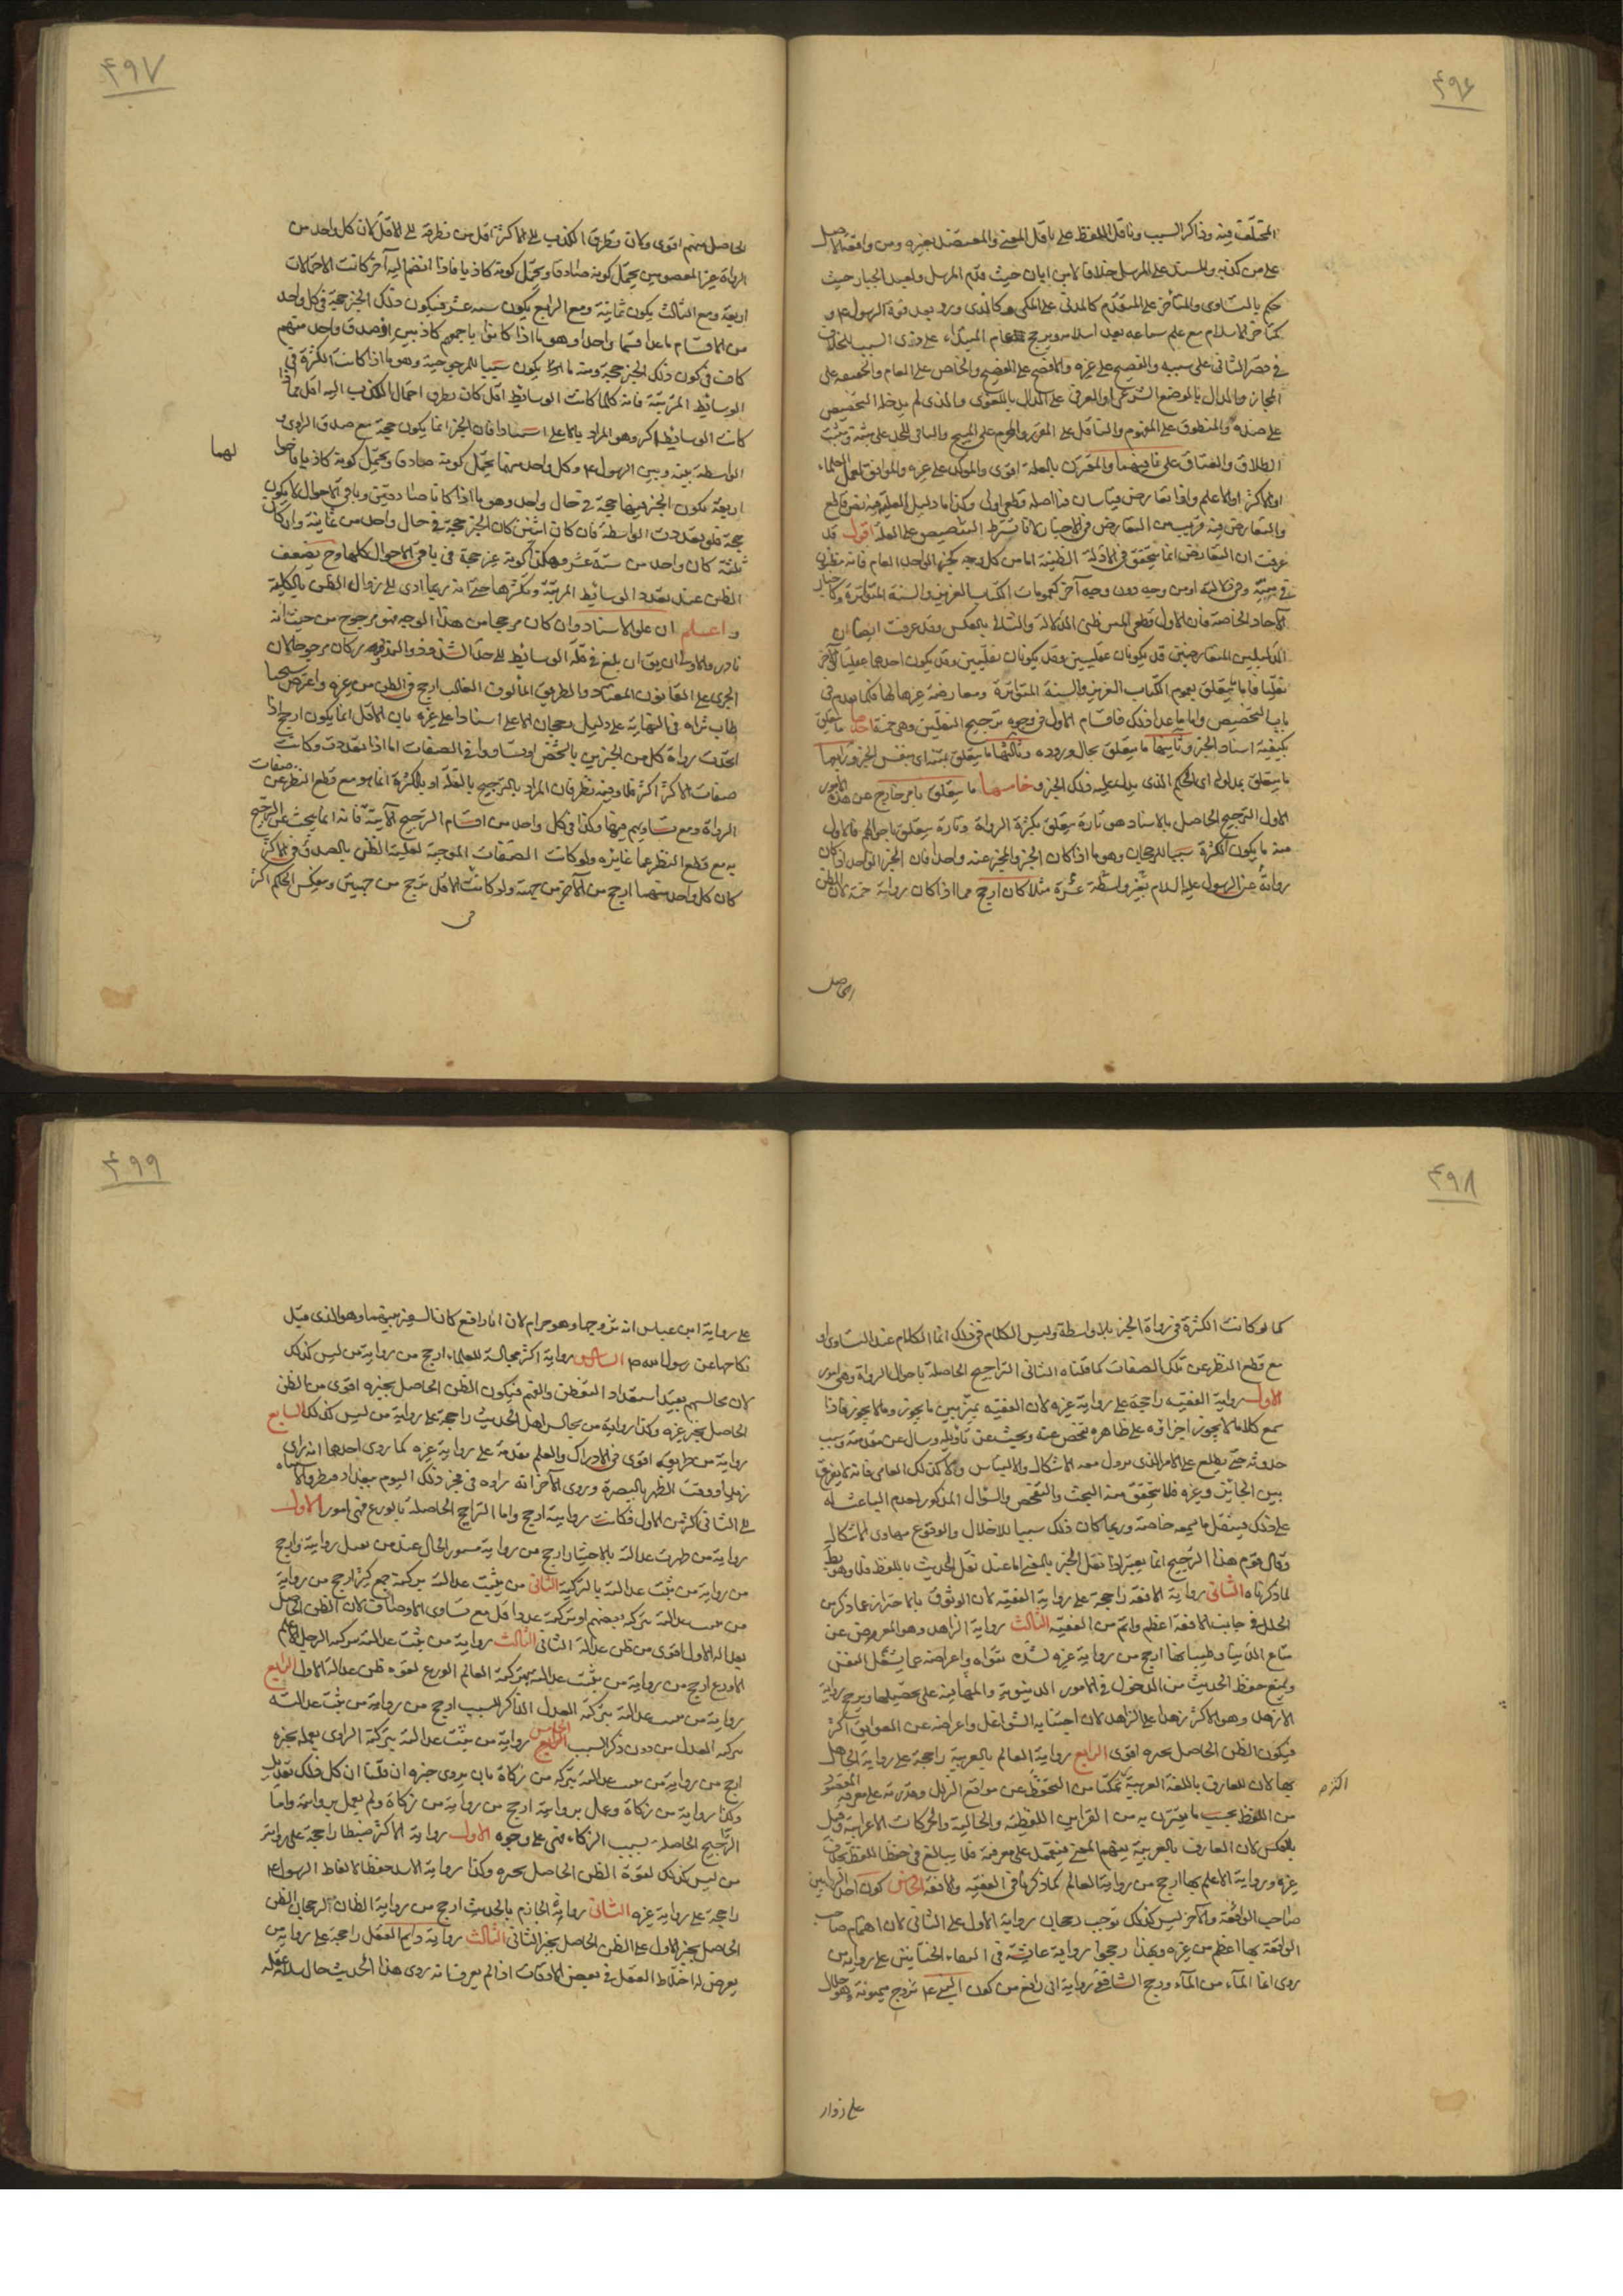 ۴۹۶
المختلف فيه وذاكر السبب وناقل اللفظ على ناقل المعنى والمعتضد بغيره ومن وافقه الاصل
على من كذبه والمسند على المرسل خلافا لابن ابان حيث قدم المرسل ولعبد الجبار حيث
حكم بالتساوى والمتأخر على المتقدم كالمدنى على المكى وكالذى ورد بعد قوة الرسول ع و
كمتاخر الاسلام مع علم سماعه بعد اسلامه ويرجح عام المبتداء على ذى السبب للخلاف
في قصر الثانى على سببه والفصيح على غيره والافصح على الفصيح والخاص على العام والحقيقة على
المجاز والدال بالوضع الشرعى او العرفى على الدال باللغوى والذى لم يدخله التخصيص
على ضده والمنطوق على المفهوم والناقل على المقرر والمحرم على المبيح والنافى للحد على مثبته ومثبت
الطلاق والعتاق على نافيهما والمقترن بالعلة اقوى والموكد على غيره والموافق لعمل العلماء
او الاكثر او الاعلم واذا تعارض قياسان فما اصله قطعى اولى وكذا ما دليل العلية فيه نص قاطع
والتعارض فيه قريب من التعارض في الاخبار لانا نشترط التنصيص على العلة اقول قد
عرفت ان التعارض انما يتحقق في الادلة الظنية اما من كل وجه كخبر الواحد العام فانه مظنون
في متنه وفي دلالته او من وجه دون وجه آخر كعمومات الكتاب العزيز والسنة المتواترة وكاخبار
الآحاد الخاصة فان الاول قطعى المتن ظنى الدلالة والثانى بالعكس وقد عرفت ايضا ان
الدليلين المتعارضين قد يكونان عقليين وقد يكونان نقليين وقد يكون احدهما عقليا والآخر
نقليا فاما ما يتعلق بعموم الكتاب العزيز والسنة المتواترة ومعارضة غيرهما لهما فكما تقدم في
باب التخصيص واما ما عدا ذلك فاقسام الاول في وجوه ترجيح النقليين وهى خمسة احدها ما يتعلق
بكيفية اسناد الخبر وثانيها ما يتعلق بحال وروده وثالثها ما يتعلق بمتنه اى بنفس الخبر ورابعها
ما يتعلق بمدلوله اى الحكم الذى يدل عليه ذلك الخبر وخامسها ما يتعلق بامر خارج عن هذه الامور
الاول الترجيح الحاصل بالاسناد هو تارة يتعلق بكثرة الرواة وتارة يتعلق باحوالهم فالاول
منه ما يكون الكثرة سببا للرجحان وهو ما اذا كان الخبر والمخبر عنه واحدا فان الخبر الواحد اذا كان
رواية عن الرسول عليه السلام بغير واسطة عشرة مثلا كان ارجح مما اذا كان رواية خمسة لان الظن
الحاصل
۴۹۷
الحاصل منهم اقوى ولان تطرق الكذب الى الاكثر اقل من تطرقه الى الاقل لان كل واحد من
الرواة غير المعصومين يحتمل كونه صادقا ويحتمل كونه كاذبا فاذا انضم اليه آخر كانت الاحتمالات
اربعة ومع الثالث يكون ثمانية ومع الرابع يكون ستة عشر فيكون ذلك الخبر حجة في كل واحد
من الاقسام ما عدا قسما واحدا وهو ما اذا كانوا باجمعهم كاذبين اذ صدق واحد منهم
كاف في كون ذلك الخبر حجة ومنه ما لا يكون سببا للمرجوحية وهو ما اذا كانت الكثرة في
الوسائط المترتبة فانه كلما كانت الوسائط اقل كان تطرق احتمال الكذب اليه اقل مما اذا
كانت الوسائط اكثر وهو المراد بالاعلى اسنادا فان الخبر انما يكون حجة مع صدق الراوى و
الواسطة بينه وبين الرسول ع وكل واحد منهما يحتمل كونه صادقا ويحتمل كونه كاذبا فاحوا
لهما
اربعة يكون الخبر فيها حجة في حال واحد وهو ما اذا كانا صادقين وباقى الاحوال لا يكون
حجة فلو تعددت الواسطة فان كان اثنين كان الخبر حجة في حال واحد من ثمانية وان كان
ثلثة كان واحد من ستة عشر وهكذا كونه غير حجة في باقى الاحوال كلها وح يضعف
الظن عند تعدد الوسائط المرتبة وتكثرها حتى انه ربما ادى الى زوال الظن بالكلية
واعلم ان علو الاسناد وان كان مرجحا من هذا الوجه فهو مرجوح من حيث انه
نادر والاولى ان يق ان بلغ في قلة الوسائط الى حد الشذوذ والندرة كان مرجوحا لان
الجرى على القانون المعتاد والطريق المألوف الغالب ارجح في الظن من غيره واعترض شيخنا
طاب ثراه في النهاية على دليل رجحان الاعلى اسنادا على غيره بان الاقل انما يكون ارجح اذا
اتحدت رواة كل من الخبرين بالشخص او تساووا في الصفات اما اذا تعددت وكانت
صفات الاكثر اكثر فلا وفيه نظر فان المراد بالترجيح بالقلة او بالكثرة انما هو مع قطع النظر عن صفات
الرواة ومع تساويهم فيها وكذا في كل واحد من اقسام الترجيح الآتية فانه انما يبحث عن الترجيح
به مع قطع النظر عما غايره ولو كانت الصفات الموجبة لغلبة الظن بالصدق في الاكثر
كان كل واحد منهما ارجح من الآخر من جهة ولو كانت الاقل ترجح من جهتين وينعكس الحكم اكثر
۴۹۸
كما لو كانت الكثرة في رواة الخبر بلا واسطة وليس الكلام في ذلك انما الكلام عند التساوى او
مع قطع النظر عن تلك الصفات كما قلناه الثانى التراجيح الحاصلة باحوال الرواة وهى امور
الاول رواية الفقيه راجحة على رواية غيره لان الفقيه يميز بين ما يجوز وما لا يجوز فاذا
سمع كلاما لا يجوز اجراؤه على ظاهره تفحص عنه وبحث عن تأويله وسال عن مقدمته وسبب
حدوثه حتى يطلع على الامر الذى يزول معه الاشكال والالتباس ولا كذلك العامى فانه لا يفرق
بين الجائز وغيره فلا يتحقق منه البحث والتفحص والسؤال المذكور لعدم الباعث له
على ذلك فينقل ما سمعه خاصة وربما كان ذلك سببا للاخلال والوقوع في مهاوى الاشكال
وقال قوم هذا الترجيح انما يعتبر اذا نقل الخبر بالمعنى اما عند نقل الحديث باللفظ فلا وهو بط
لما ذكرناه الثانى رواية الافقه راجحة على رواية الفقيه لان الوثوق بالاحتراز عما ذكر من
الخلل في جانب الافقه اعظم واتم من الفقيه الثالث رواية الزاهد وهو المعرض عن
متاع الدنيا وطيباتها ارجح من رواية غيره لشدة تقواه واعراضه عما يشغل النفس
ويمنع حفظ الحديث من الدخول في الامور الدنيوية والتهافت على تحصيلها ويرجح رواية
الازهد وهو الاكثر زهدا على الزاهد لان اجتنابه الشواغل واعراضه عن العوايق اكثر
فيكون الظن الحاصل بخبره اقوى الرابع رواية العالم بالعربية راجحة على رواية الجاهل
بها لان للعارف باللغة العربية تمكنا من التحفظ عن مواقع الزلل وقدرة على معرفة المقصود
من اللفظ بحسب ما يقترن به من القراين اللفظية والحالية والحركات الاعرابية وقيل
بالعكس لان العارف بالعربية يفهم المعنى فيتكل على معرفته فلا يبالغ في حفظ اللفظ بخلاف
غيره ورواية الاعلم بها ارجح من رواية العالم كما ذكرنا في الفقيه والافقه الخامس كون احد الراويين
صاحب الواقعة والآخر ليس كذلك توجب رجحان رواية الاول على الثانى لان اهتمام صاحب
الواقعة بها اعظم من غيره ولهذا رجحوا رواية عائشة في التقاء الختانين على رواية من
روى انما الماء من الماء ورجح الشافعى رواية ابى رافع من كون النبى ع تزوج ميمونة وهو حلال
على زوار
۴۹۹
على رواية ابن عباس انه تزوجها وهو حرام لان ابا رافع كان السفير بينهما وهو الذى قبل
نكاحها عن رسول الله ص السادس رواية اكثر مجالسة للعلماء ارجح من رواية من ليس كذلك
لان مجالستهم يفيد استعداد التفطن والفهم فيكون الظن الحاصل بخبره اقوى من الظن
الحاصل بخبر غيره وكذا رواية من يجالس اهل الحديث راجحة على رواية من ليس كذلك السابع
رواية من طريقه اقوى في الادراك والعلم مقدمة على رواية غيره كما روى احدهما انه راى
زيدا وقت الظهر بالبصرة وروى الآخر انه رآه في فجر ذلك اليوم ببغداد فتطرق الاشتباه
الى الثانى اكثر من الاول فكانت روايته ارجح واما التراجيح الحاصلة بالورع فهى امور الاول
رواية من ظهرت عدالته بالاختبار ارجح من رواية مستور الحال عند من يعمل بروايته وارجح
من رواية من ثبت عدالته بالتزكية الثانى من يثبت عدالته بتزكية جمع كثير ارجح من رواية
من يثبت عدالته بتزكية بعضهم او بتزكية عدد اقل مع تساوى الاوصاف لان الظن الحاصل
بعدالة الاول اقوى من ظن عدالة الثانى الثالث رواية من يثبت عدالته بتزكية الرجل الاعلم
الاورع ارجح من رواية من يثبت عدالته بتزكية العالم الورع لقوة ظن عدالة الاول الرابع
رواية من يثبت عدالته بتزكية المعدل الذاكر للسبب ارجح من رواية من يثبت عدالته
بتزكية المعدل من دون ذكر السبب الخامس رواية من يثبت عدالته بتزكية الراوى بعمله بخبره
ارجح من رواية من يثبت عدالته بتزكية من زكاه بان يروى خبره ان قلنا ان كل ذلك تعديل
وكذا رواية من زكاه وعمل بروايته ارجح من رواية من زكاه ولم يعمل بروايته واما
التراجيح الحاصلة بسبب الزكاء فهى على وجوه الاول رواية الاكثر ضبطا راجحة على رواية
من ليس كذلك لقوة الظن الحاصل بخبره وكذا رواية الاشد حفظا لالفاظ الرسول ع
راجحة على رواية غيره الثانى رواية الجازم بالحديث ارجح من رواية الظان لرجحان الظن
الحاصل بخبر الاول على الظن الحاصل بخبر الثانى الثالث رواية دايم العقل راجحة على رواية من
يعرض له اختلاط العقل في بعض الاوقات اذا لم يعرف انه روى هذا الحديث حال سلامة عقله